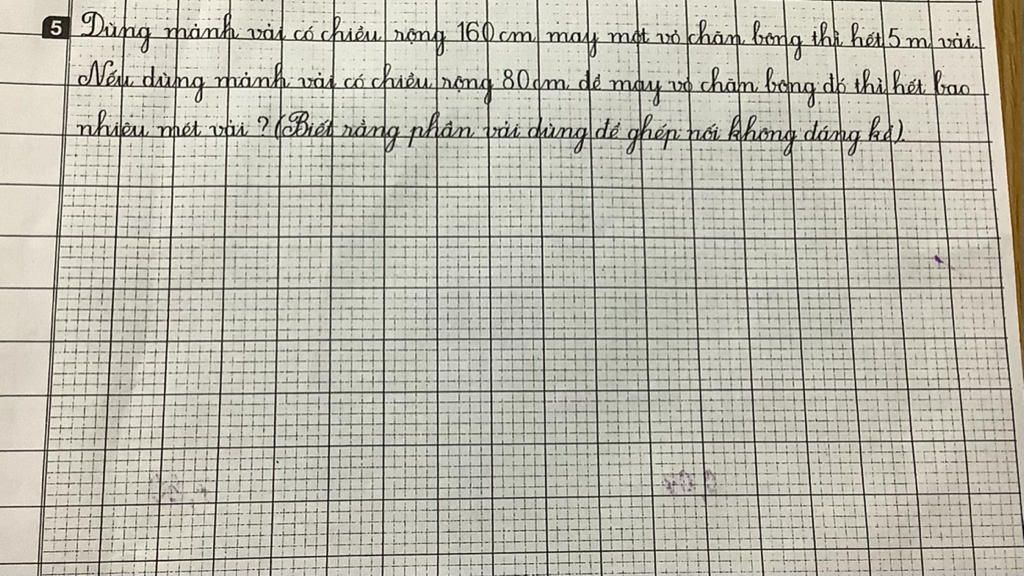 5 Dùng mảnh vải có chiều rộng 160 cm may một vỏ chăn bông thì hết 5 m vải.
Nếu dùng mảnh vải có chiều rộng 80 cm để may vỏ chăn bông đó thì hết bao
nhiêu mét vải ? (Biết rằng phần vải dùng để ghép nối không đáng kể).